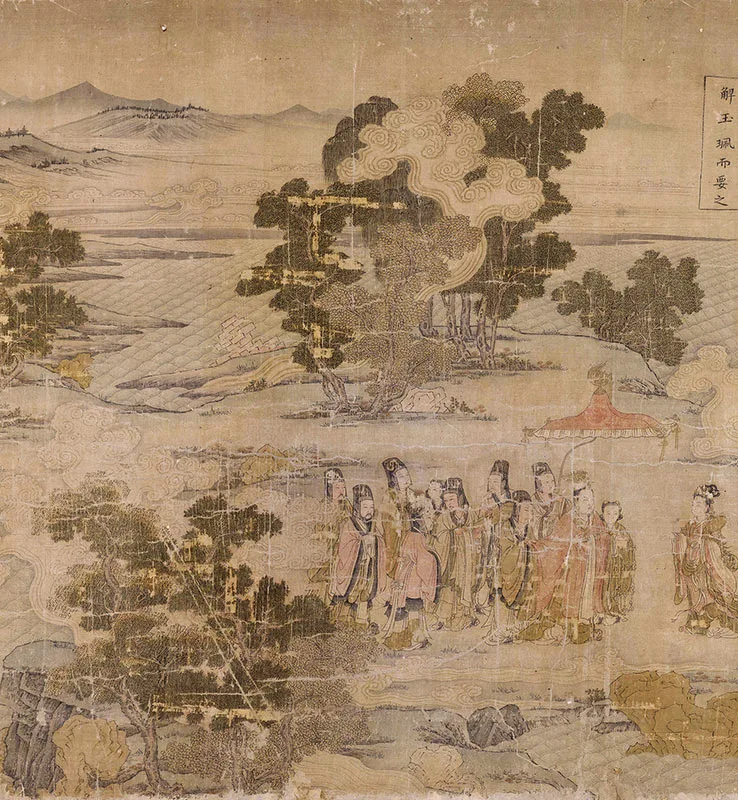 解玉珮而要之